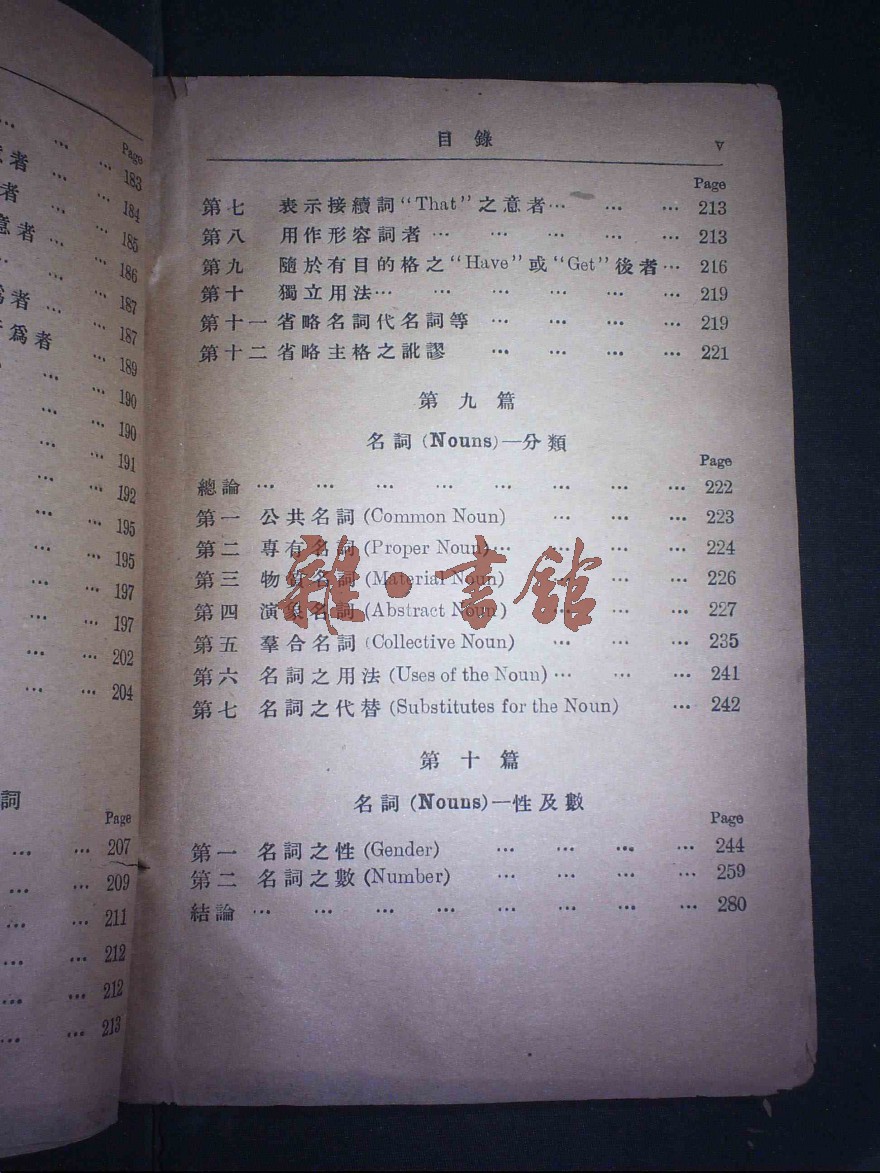 Page
183
者 … … 184
185
… … 186
… … 187
187
189
… … 190
… … 190
… … 191
… … 192
… … 195
… … 195
… … 197
… … 197
… … 202
… … 204
詞
Page
… … 207
… … 209
… … 211
… … 212
… … 212
… … 213
目錄 v
Page
第七 表示接續詞“That”之意者… … … … 213
第八 用作形容詞者 … … … … … 213
第九 隨於有目的格之“Have”或“Get”後者… 216
第十 獨立用法… … … … … … 219
第十一 省略名詞代名詞等 … … … … 219
第十二 省略主格之訛謬 … … … … 221
第九篇
名詞 (Nouns)—分類
Page
總論 … … … … … … … … 222
第一 公共名詞 (Common Noun) … … … 223
第二 專有名詞 (Proper Noun)… … … … 224
第三 物質名詞 (Material Noun) … … … 226
第四 演象名詞 (Abstract Noun) … … … 227
第五 羣合名詞 (Collective Noun) … … … 235
第六 名詞之用法 (Uses of the Noun)… … … 241
第七 名詞之代替 (Substitutes for the Noun) … 242
雜·書館
第十篇
名詞 (Nouns)—性及數
Page
第一 名詞之性 (Gender) … … … … 244
第二 名詞之數 (Number) … … … … 259
結論 … … … … … … … … 280